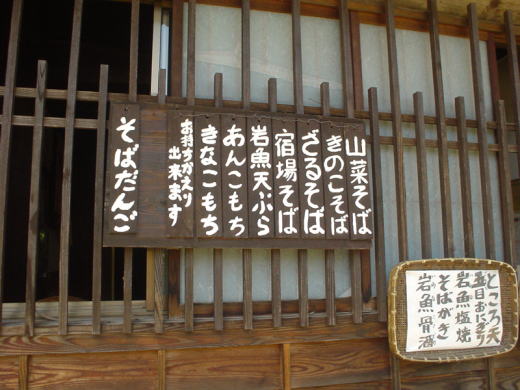 山菜そば
きのこそば
ざるそば
宿場そば
岩魚天ぷら
あんこもち
きなこもち
お持ちがえり
出来ます
そばだんご
ところ天
おにぎり
岩魚塩焼
そばがき
岩魚骨酒